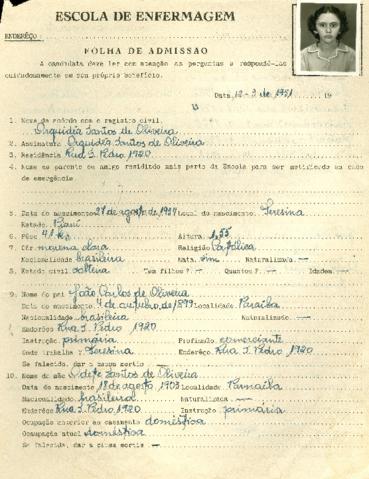 ESCOLA DE ENFERMAGEM
ENDERÊÇO
FOLHA DE ADMISSÃO
A candidata deve ler com atenção as perguntas e respondê-las
cuidadosamente em seu próprio benefício.
Data, 12-3 de 1951 19
1. Nome de acôrdo com o registro civil.
Orquidéa Santos de Oliveira
2. Assinatura Orquidéa Santos de Oliveira
3. Residência Rua J. Pedro 1920
4. Nome de parente ou amigo residindo mais perto da Escola para ser notificado em caso
de emergência
5. Data do nascimento 27 de agosto de Local do nascimento. Teresina
Estado. Piauí
6. Pêso Altura. 1,55
7. Côr morena clara Religião Católica
Nacionalidade brasileira Nata. sim Naturalizada —
8. Estado civil solteira Tem filhos? — Quantos? — Idades —
9. Nome do pai João Carlos de Oliveira
Data do nascimento 4 de outubro de 1899 Localidade Paraíba
Nacionalidade brasileira Naturalizado —
Enderêço Rua J. Pedro 1920
Instrução primária Profissão comerciante
Onde trabalha? Teresina Enderêço Rua J. Pedro 1920
Se falecido, dar a causa mortis —
10. Nome da mãe Odete Santos de Oliveira
Data do nascimento 18 de agosto 1903 Localidade Parnaíba
Nacionalidade brasileira Naturalizada —
Enderêço Rua J. Pedro 1920 Instrução primária
Ocupação anterior ao casamento doméstica
Ocupação atual doméstica
Se falecida, dar a causa mortis —